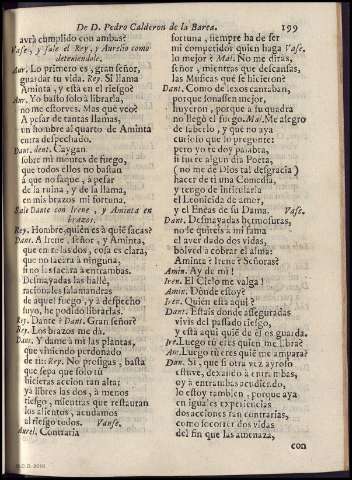 De D. Pedro Calderon de la Barca. 199
avrà cumplido con ambas?
Vase, y sale el Rey, y Aurelio como
deteniendole.
Aur. Lo primero es, gran señor,
guardar tu vida. Rey. Si llama
Aminta, y està en el riesgo?
Aur. Yo basto solo à librarla,
no me estorves. Mas què veo?
A pesar de tantas llamas,
un hombre al quarto de Aminta
entra despechado.
Dant. dent. Caygan
sobre mi montes de fuego,
que todos ellos no bastan
à que no saque, à pesar
de la ruina, y de la llama,
en mis brazos mi fortuna.
Sale Dante con Irene, y Aminta en
brazos.
Rey. Hombre, quien es à quiè sacas?
Dant. A Irene, señor, y Aminta,
que en tre las dos, cosa es clara,
que no sacàra à ninguna,
si no las sacàra à entrambas.
Desmayadas las hallè,
racionales salamandras
de aquel fuego, y à despecho
suyo, he podido librarlas.
Rey. Dante? Dant. Gran señor?
Rey. Los brazos me dà.
Dant. Y dame à mi las plantas,
que viniendo perdonado
de ti: Rey. No prosigas, basta
que sepa que solo tu
hicieras accion tan alta;
yà libres las dos, à menos
riesgo, mientras que restauran
los alientos, acudamos
al riesgo todos. Vanse.
Aurel. Contraria
fortuna, siempre ha de ser
mi competidor quien haga Vase.
lo mejor? Mal. No me diràs,
señor, mientras que descansas,
las Musicas què se hicieron?
Dant. Como de lexos cantaban,
porque sonassen mejor,
huyeron, porque à su quadra
no llegò el fuego. Mal. Me alegro
de saberlo, y què no aya
curioso que lo pregunte:
pero yo te doy palabra,
si fuere algun dia Poeta,
(no me dè Dios tal desgracia)
hacer de ti una Comedia,
y tengo de intitularla
el Leonicida de amor,
y el Eneas de su Dama. Vase.
Dant. Desmayadas hermosuras,
no le quiteis à mi fama
el aver dado dos vidas,
bolved à cobrar el alma:
Aminta? Irene? Señoras?
Amin. Ay de mi!
Iren. El Cielo me valga!
Amin. Dònde estoy?
Iren. Quien està aqui?
Dant. Estais donde asseguradas
vivis del passado riesgo,
y està aqui quiè de èl os guarda.
Ire. Luego tu eres quien me librò?
Am. Luego tu eres quiè me ampara?
Dant. Si, que si otra vez ayroso
estuve, dexando à entrambas,
oy à entrambas acudiendo,
lo estoy tambien, porque aya
en iguales experiencias
dos acciones tan contrarias,
como socorrer dos vidas
del fin que las amenaza,
con